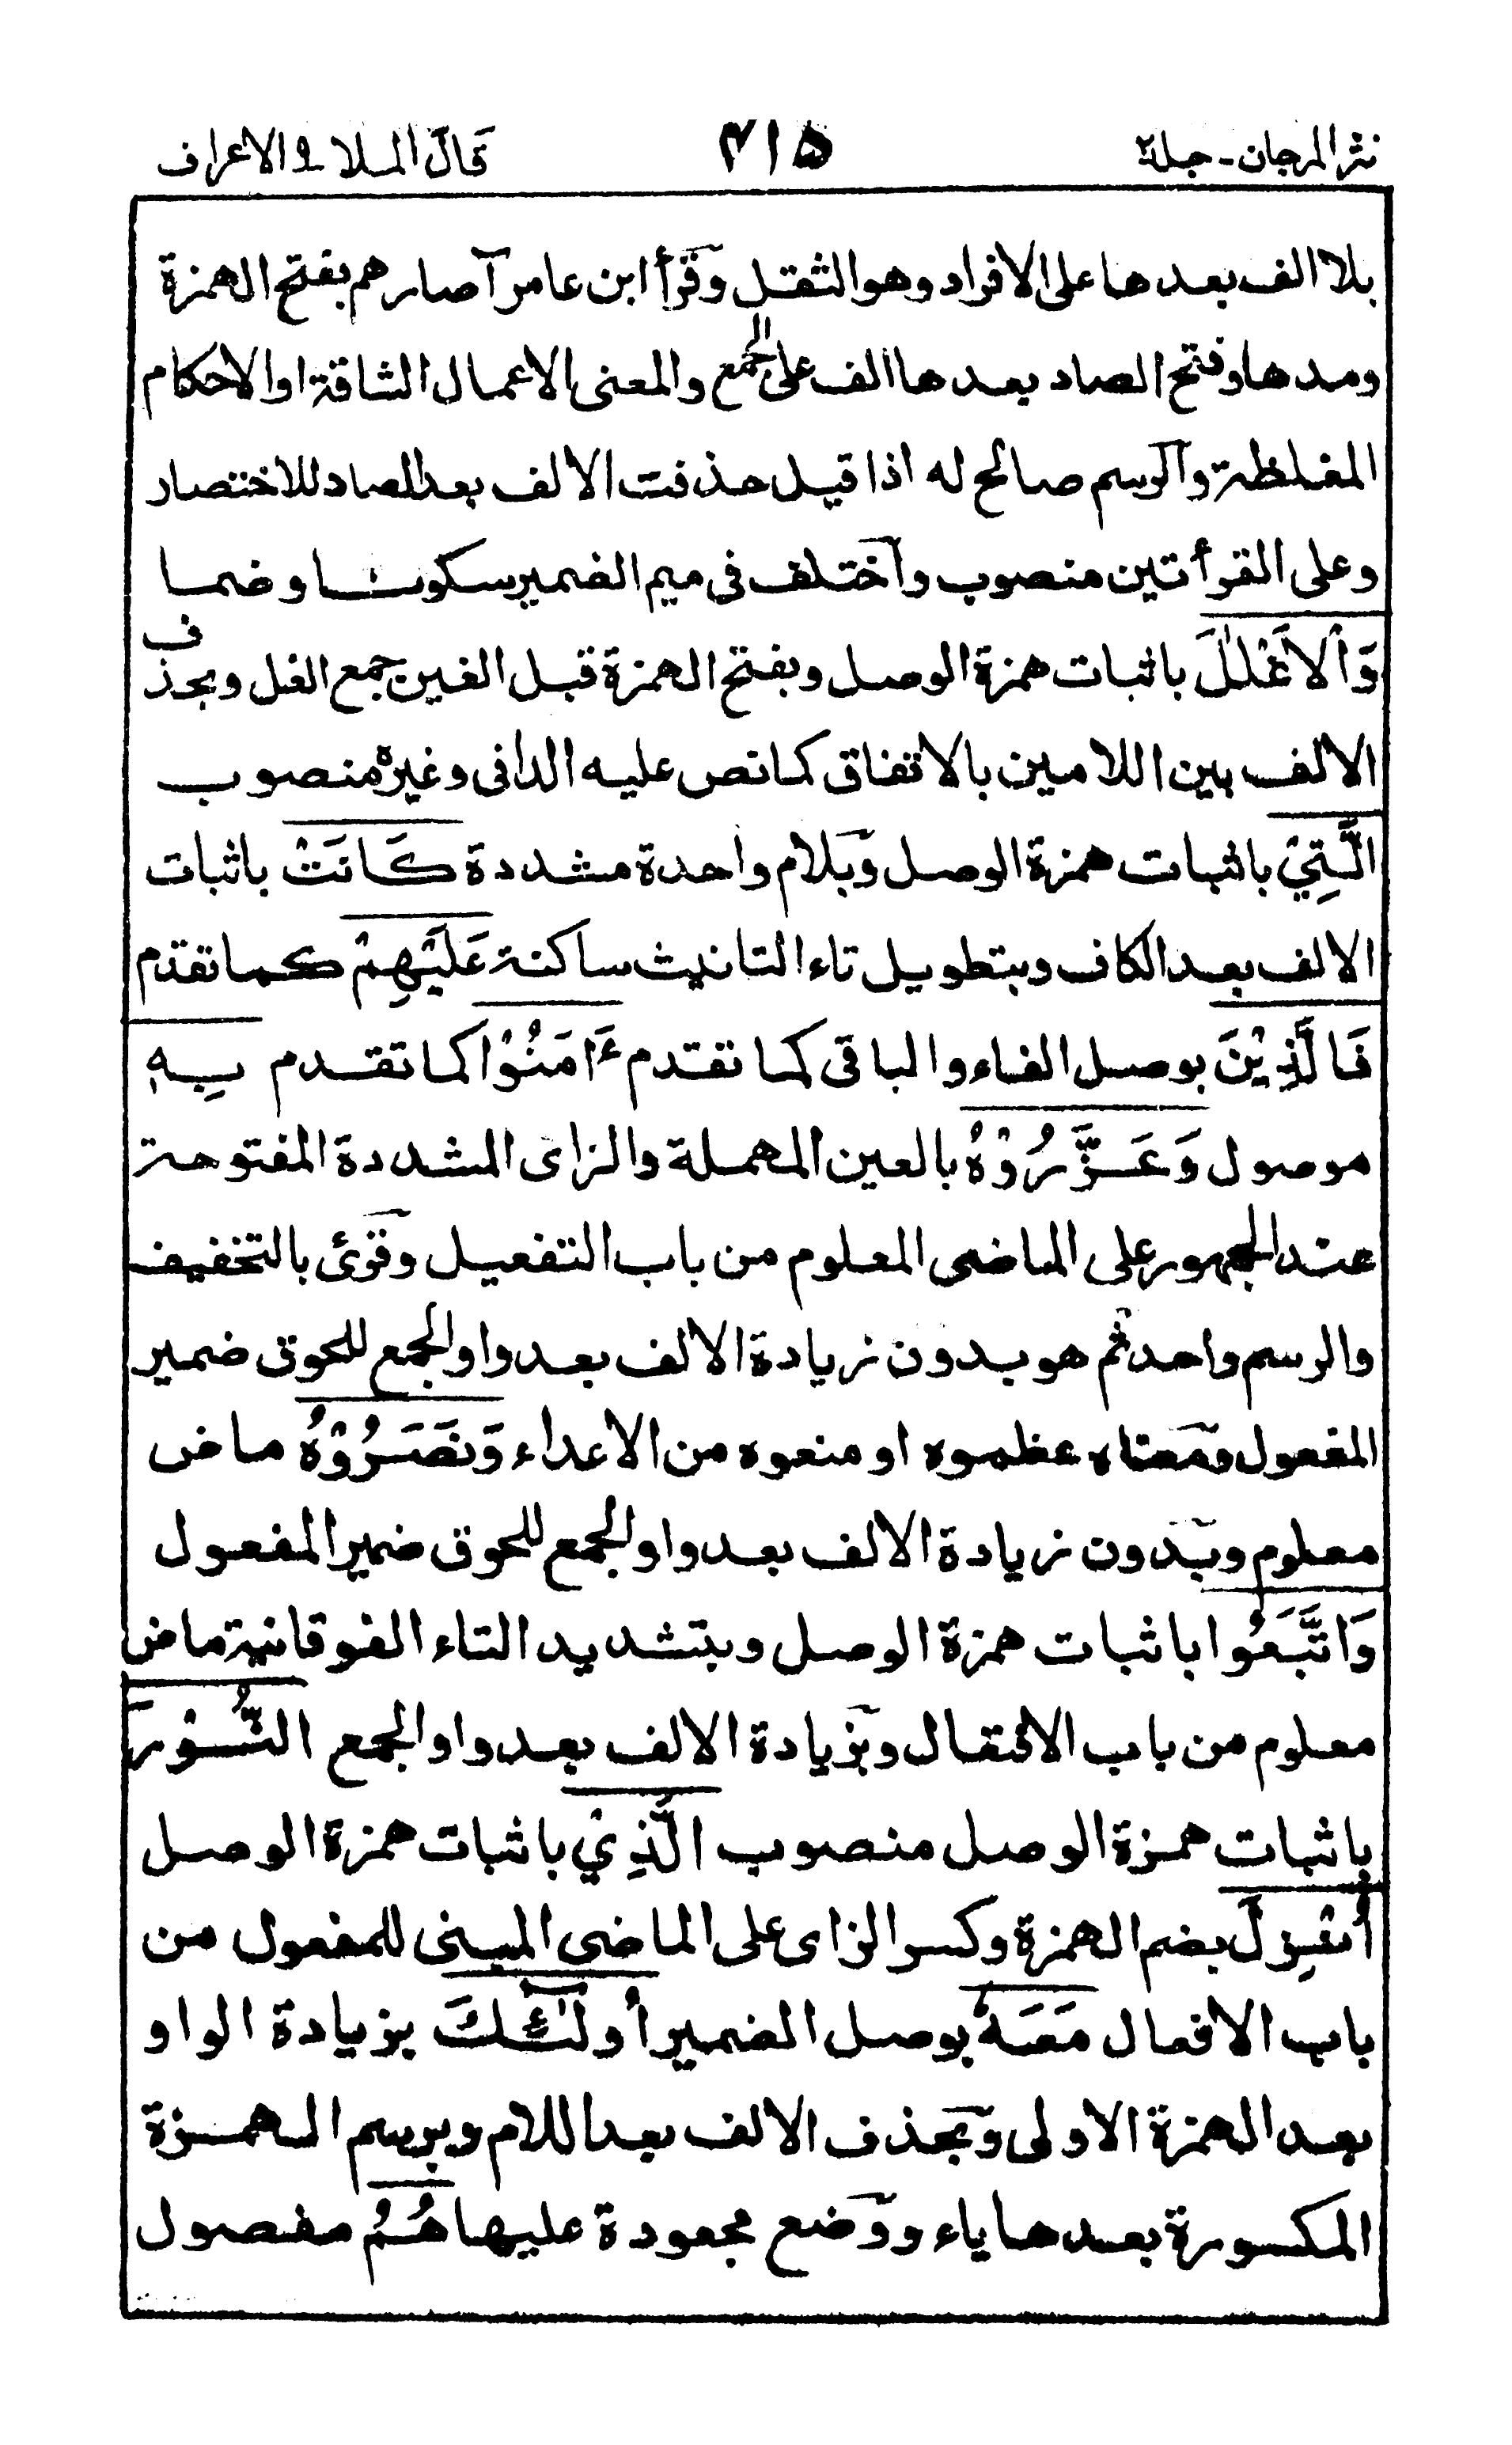 نثر المرجان - جلد٢ ٢١٥ قَالَ الملا ٩ الاعراف
بلا الف بعدها على الافراد وهو الثقل وقرأ ابن عامر آصارهم بفتح الهمزة
ومدها وفتح الصاد بعدها الف على الجمع والمعنى الاعمال الشاقة او الاحكام
المغلظة والرسم صالح له اذا قيل حذفت الالف بعد الصاد للاختصار
وعلى القرأتين منصوب واختلف فى ميم الضمير سكونا وضما
وَالْاَغْلٰلَ باثبات همزة الوصل وبفتح الهمزة قبل الغين جمع الغل وبحذف
الالف بين اللامين بالاتفاق كما نص عليه الدانى وغيره منصوب
الَّتِيْ باثبات همزة الوصل وبلام واحدة مشددة كَانَتْ باثبات
الالف بعد الكاف وبتطويل تاء التانيث ساكنة عَلَيْهِمْ كما تقدم
فَالَّذِيْنَ بوصل الفاء والباقى كما تقدم ءَامَنُوْا كما تقدم بِهٖ
موصول وَعَزَّرُوْهُ بالعين المهملة والزاى المشددة المفتوحة
عند الجمهور على الماضى المعلوم من باب التفعيل وقرئ بالتخفيف
والرسم واحد ثم هو بدون زيادة الالف بعد واو الجمع للحوق ضمير
المفعول ومعناه عظموه او منعوه من الاعداء وَنَصَرُوْهُ ماض
معلوم وبدون زيادة الالف بعد واو الجمع للحوق ضمير المفعول
وَاتَّبَعُوا باثبات همزة الوصل وبتشديد التاء الفوقانية ماض
معلوم من باب الافتعال وبزيادة الالف بعد واو الجمع النُّوْرَ
باثبات همزة الوصل منصوب الَّذِيْ باثبات همزة الوصل
اُنْزِلَ بضم الهمزة وكسر الزاى على الماضى المبنى للمفعول من
باب الافعال مَعَهٗ بوصل الضمير أُولٰٓئِكَ بزيادة الواو
بعد الهمزة الاولى وبحذف الالف بعد اللام وبرسم الهمزة
المكسورة بعدها ياء ووضع مجعودة عليها هُمُ مفصول